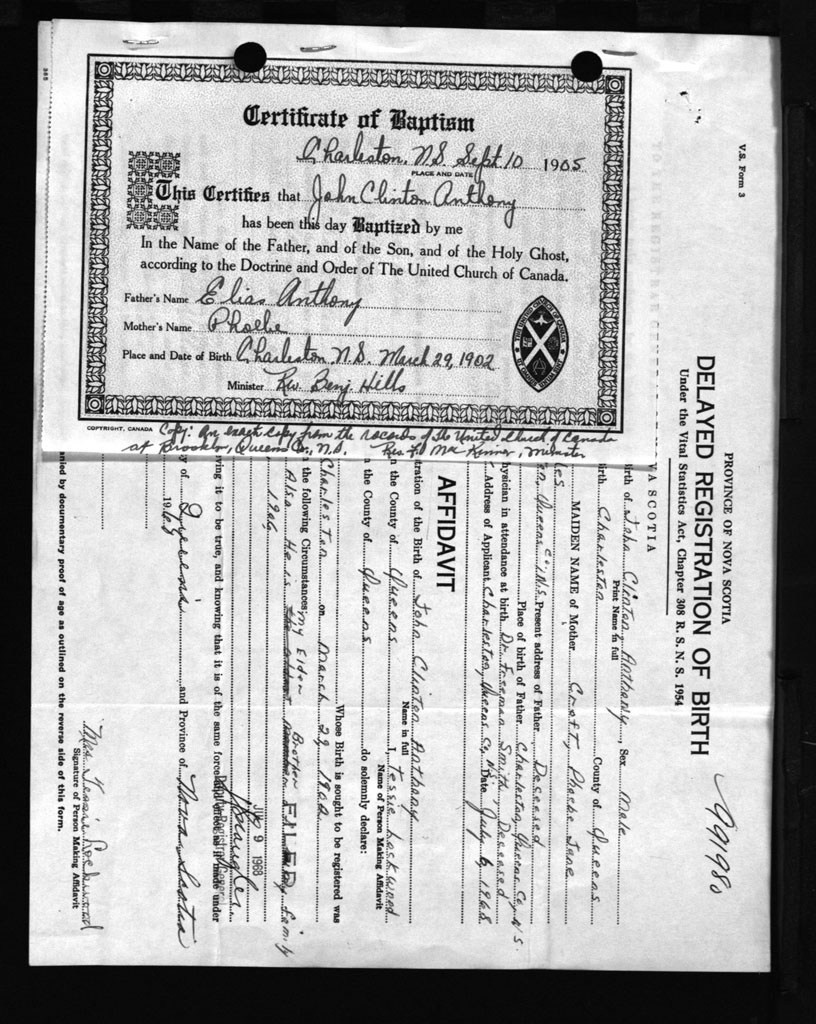 Certificate of Baptism
Charleston, N.S. Sept. 10 1905
PLACE AND DATE
This Certifies that John Clinton Anthony
has been this day Baptized by me
In the Name of the Father, and of the Son, and of the Holy Ghost,
according to the Doctrine and Order of The United Church of Canada.
Father's Name Elias Anthony
Mother's Name Phoebe
Place and Date of Birth Charleston, N.S. March 29, 1902
Minister Rev. Benj. Hills
COPYRIGHT, CANADA
Copy: An exact copy from the records of the United Church of Canada
at Brooklyn, Queens Co., N.S. Minister
V.S. Form 3
PROVINCE OF NOVA SCOTIA
DELAYED REGISTRATION OF BIRTH
Under the Vital Statistics Act, Chapter 308 R. S. N. S. 1954
99198
birth of John Clinton Anthony Sex Male
Print Name in full
irth Charleston County of Queens
MAIDEN NAME of Mother Croft, Phoebe Jane
Queens Co. N.S. Present address of Father Deceased
Place of birth of Father Charleston, Queens Co. N.S.
hysician in attendance at birth Dr. Freeman Smith, Deceased
Address of Applicant Charleston, Queens Co. N.S. Date July 6, 1968
AFFIDAVIT
tration of the Birth of John Clinton Anthony
Name in full
n the County of Queens I, Tessie Lockwood
Name of Person Making Affidavit
n the County of Queens do solemnly declare:
Whose Birth is sought to be registered was
Charleston on March 29 1902
the following Circumstances: my Elder Brother
Also He is family
1906
FILED
JUL 9 1968
ving it to be true, and knowing that it is of the same force
made under
y of Queens and Province of Nova Scotia
1968
Mrs Tessie Lockwood
Signature of Person Making Affidavit
anied by documentary proof of age as outlined on the reverse side of this form.